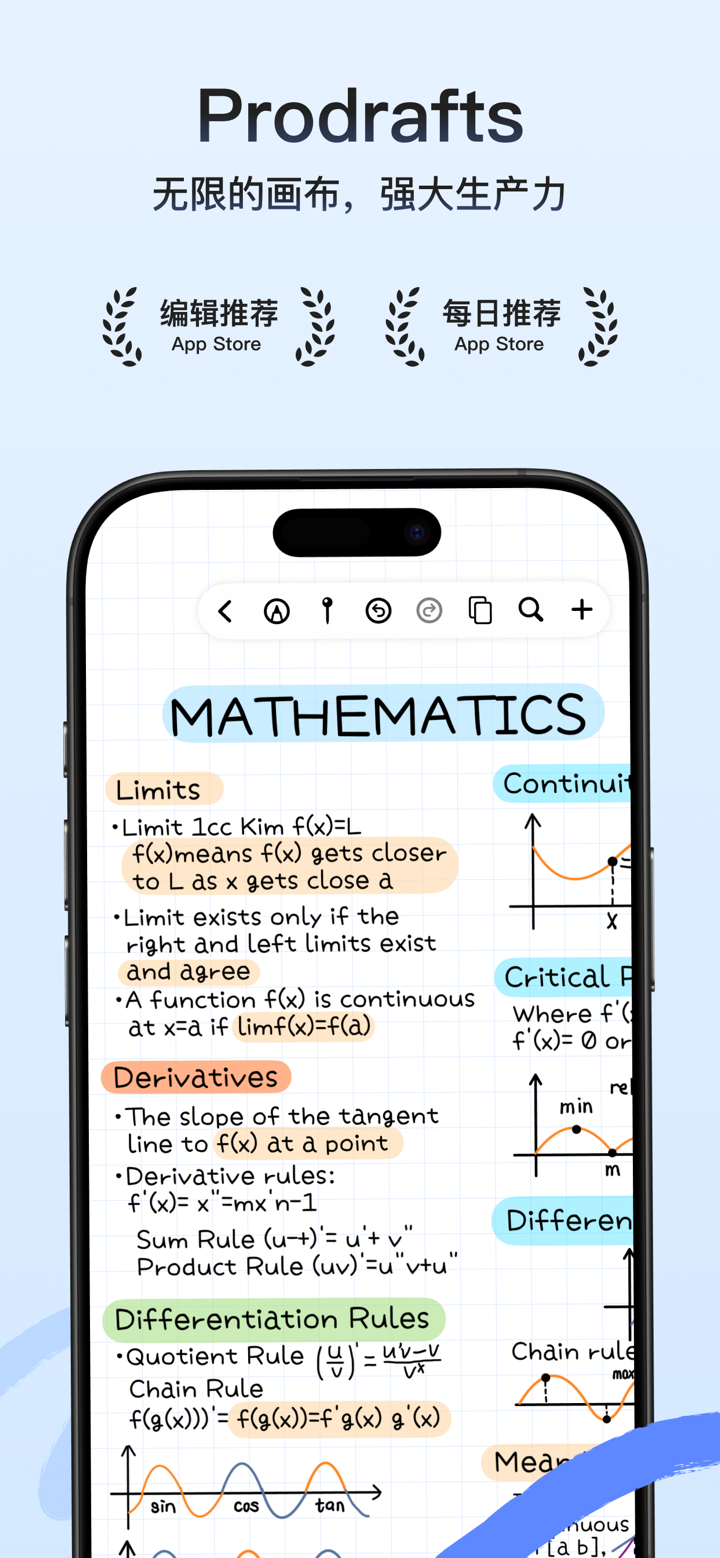 Prodrafts
无限的画布，强大生产力
编辑推荐
App Store
每日推荐
App Store
MATHEMATICS
Limits
•Limit 1cc Kim f(x)=L
f(x)means f(x) gets closer
to L as x gets close a
•Limit exists only if the
right and left limits exist
and agree
•A function f(x) is continuous
at x=a if limf(x)=f(a)
Derivatives
•The slope of the tangent
line to f(x) at a point
•Derivative rules:
f'(x)= x"=mx'n-1
Sum Rule (u-+)'= u'+ v"
Product Rule (uv)'=u"v+u"
Differentiation Rules
•Quotient Rule (u/v)'= u'v-v/vˣ
Chain Rule
f(g(x)))'=f(g(x))=f'g(x) g'(x)
sin cos tan
Continuit
=
x
Critical P
Where f'(
f'(x)= 0 or
rel
min
m
Differen
Chain rule
max
Mean
nuous
[a b],